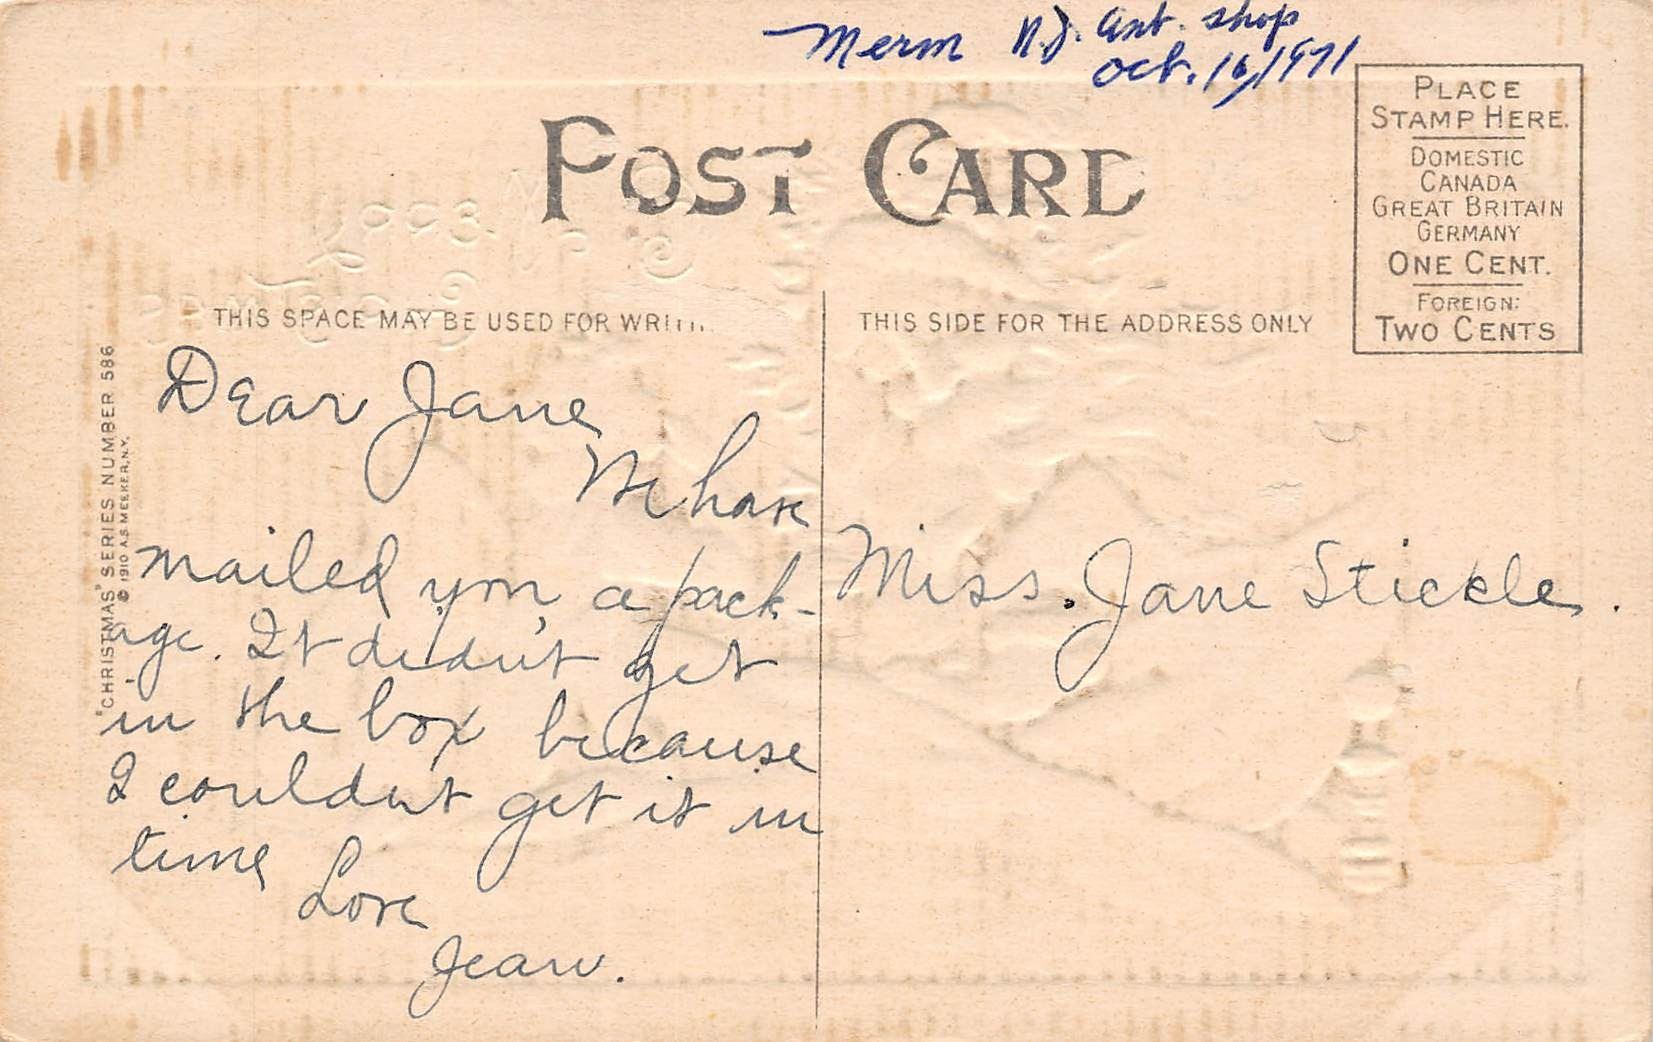 Merm N.J. Ant. Shop
Oct. 16/1971
PLACE
STAMP HERE.
DOMESTIC
CANADA
GREAT BRITAIN
GERMANY
ONE CENT.
FOREIGN:
TWO CENTS
POST CARD
THIS SPACE MAY BE USED FOR
THIS SIDE FOR THE ADDRESS ONLY
"CHRISTMAS" SERIES NUMBER 586
© 1910 A.S. MEEKER, N.Y.
Dear Jane
We have
mailed you a pack-
age. It didn't get
in the box because
I couldn't get it in
time
Love
Jean.
Miss. Jane Stickle.